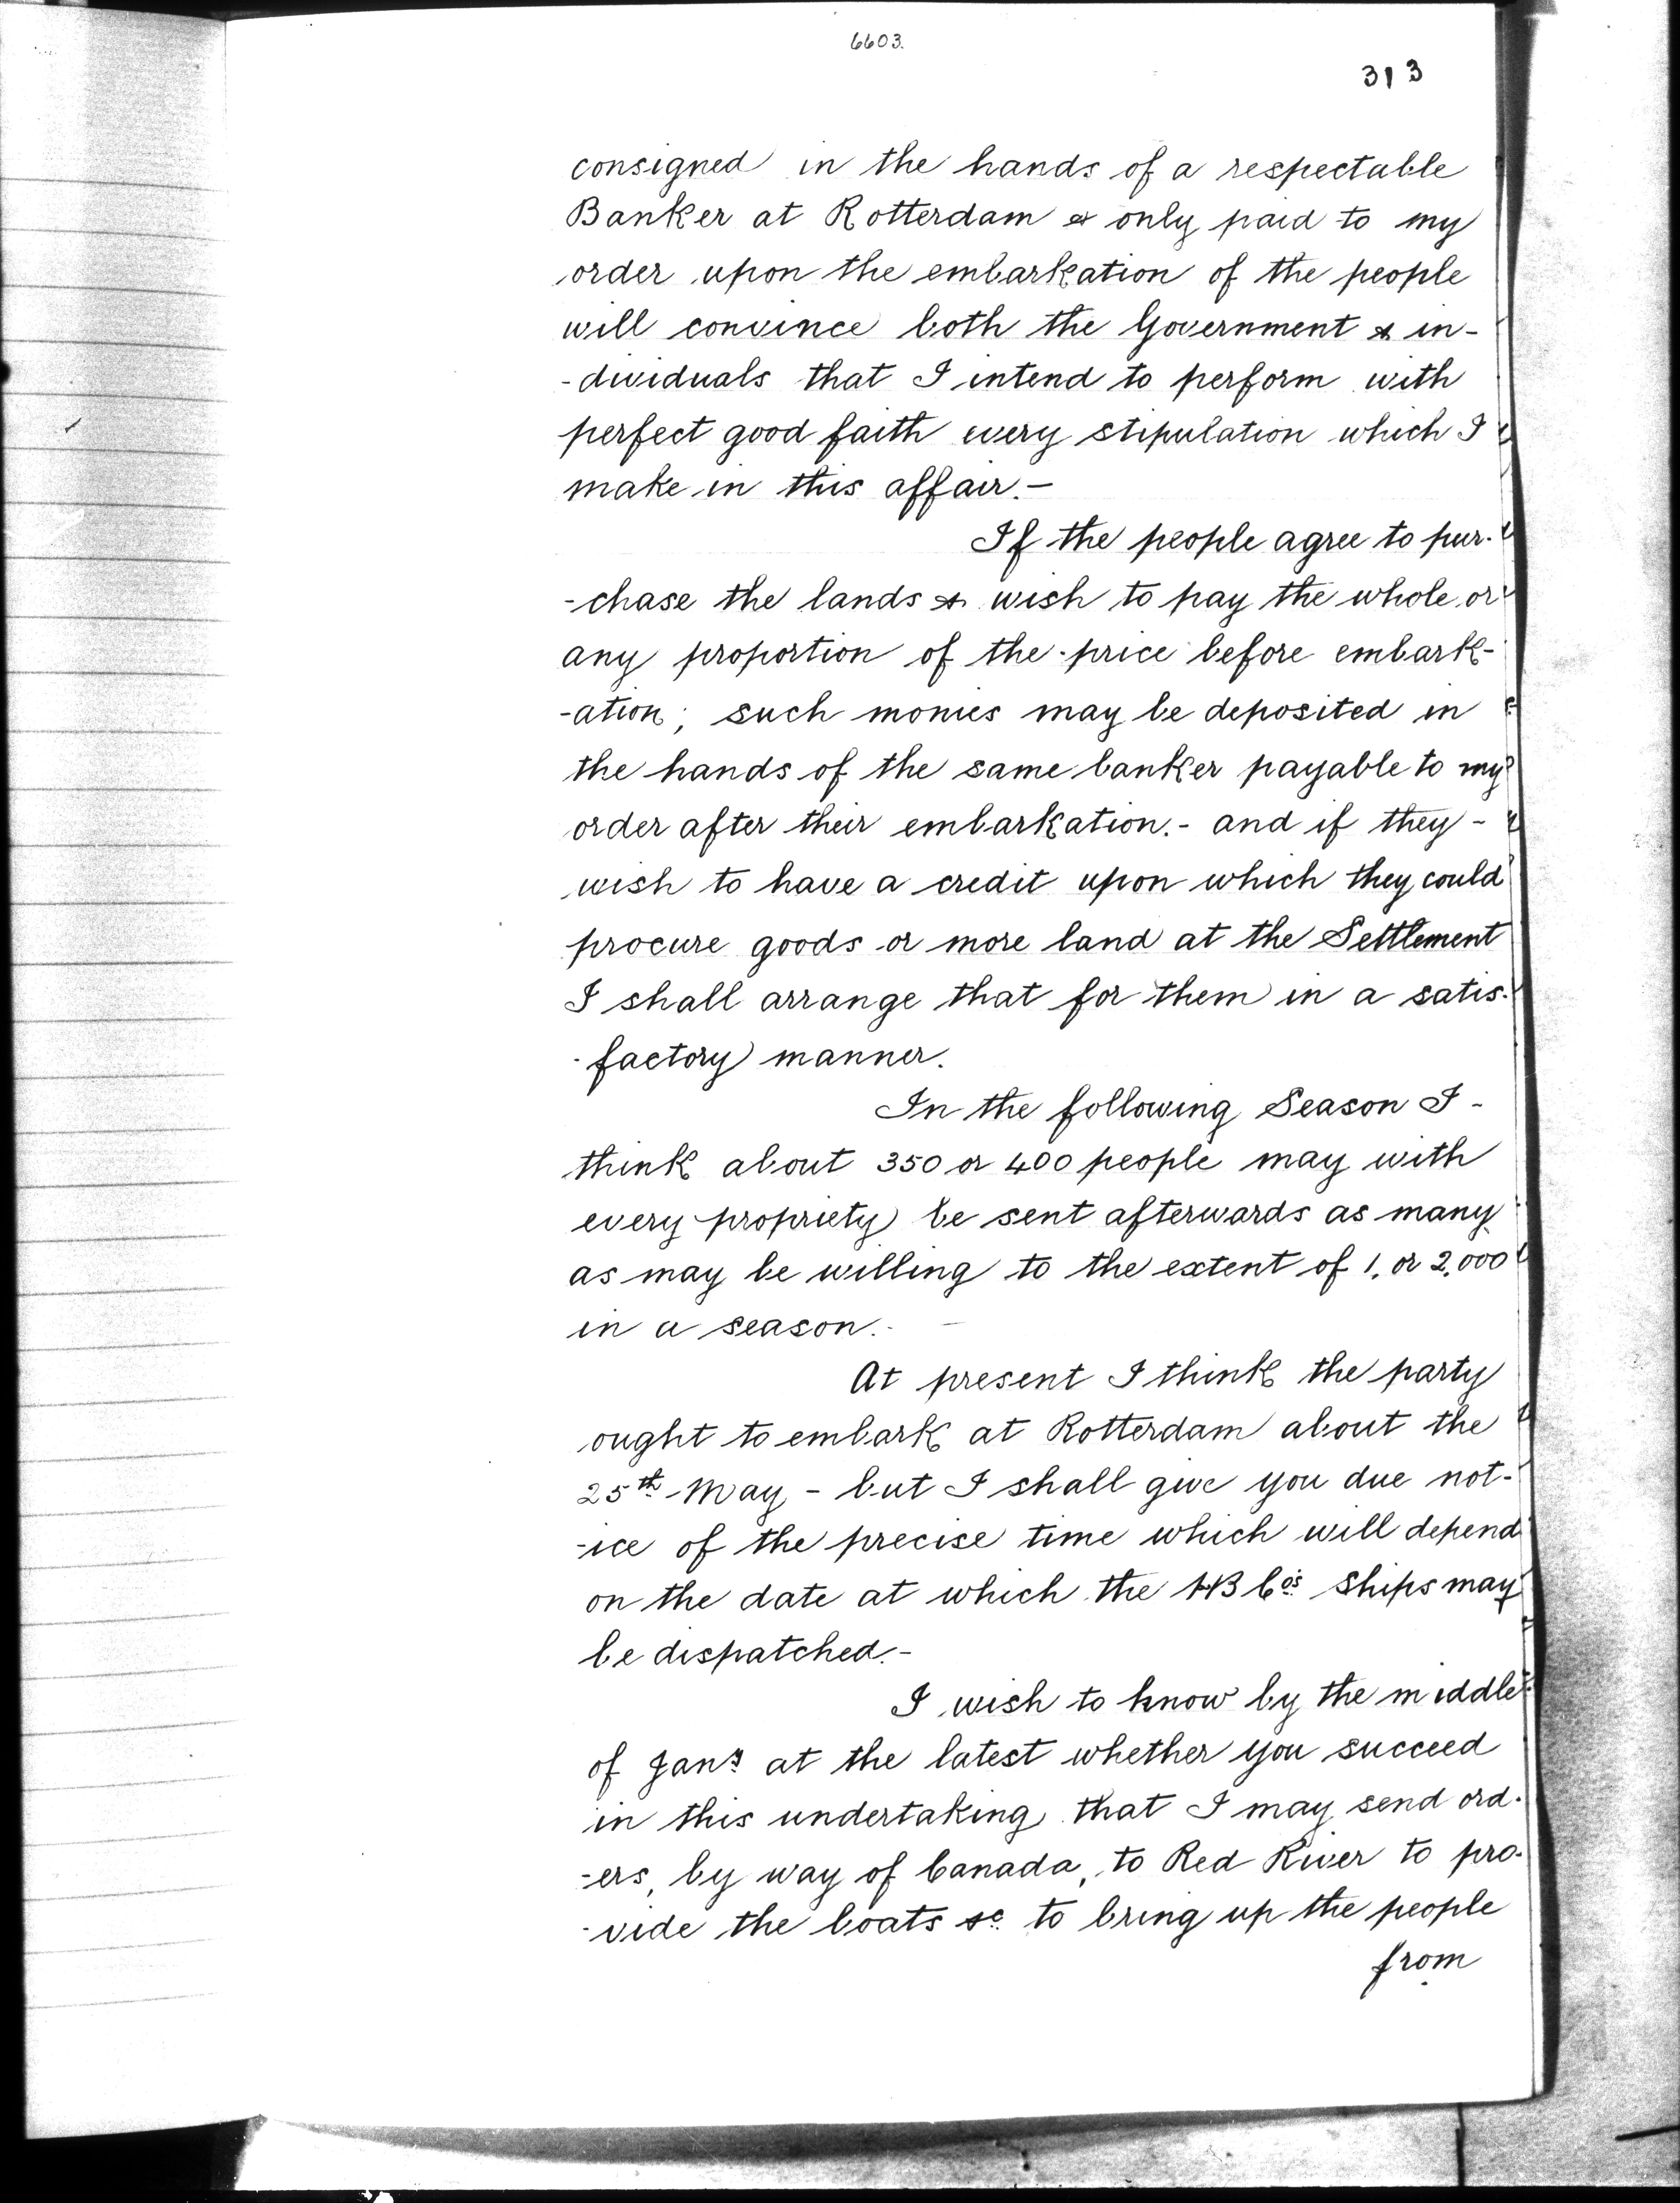 6603.
313
consigned in the hands of a respectable
Banker at Rotterdam & only paid to my
order upon the embarkation of the people
will convince both the Government & in-
-dividuals that I intend to perform with
perfect good faith every stipulation which I
make in this affair.-
If the people agree to pur-
-chase the lands & wish to pay the whole or
any proportion of the price before embark-
-ation; such monies may be deposited in
the hands of the same banker payable to my
order after their embarkation.- and if they -
wish to have a credit upon which they could
procure goods or more land at the Settlement
I shall arrange that for them in a satis-
-factory manner.
In the following Season I -
think about 350 or 400 people may with
every propriety be sent afterwards as many
as may be willing to the extent of 1, or 2,000
in a season.-
At present I think the party
ought to embark at Rotterdam about the
25th May - but I shall give you due not-
-ice of the precise time which will depend
on the date at which the HB Co's Ships may
be dispatched.-
I wish to know by the middle
of Jany at the latest whether you succeed
in this undertaking that I may send ord-
-ers, by way of Canada, to Red River to pro-
-vide the boats &c to bring up the people
from